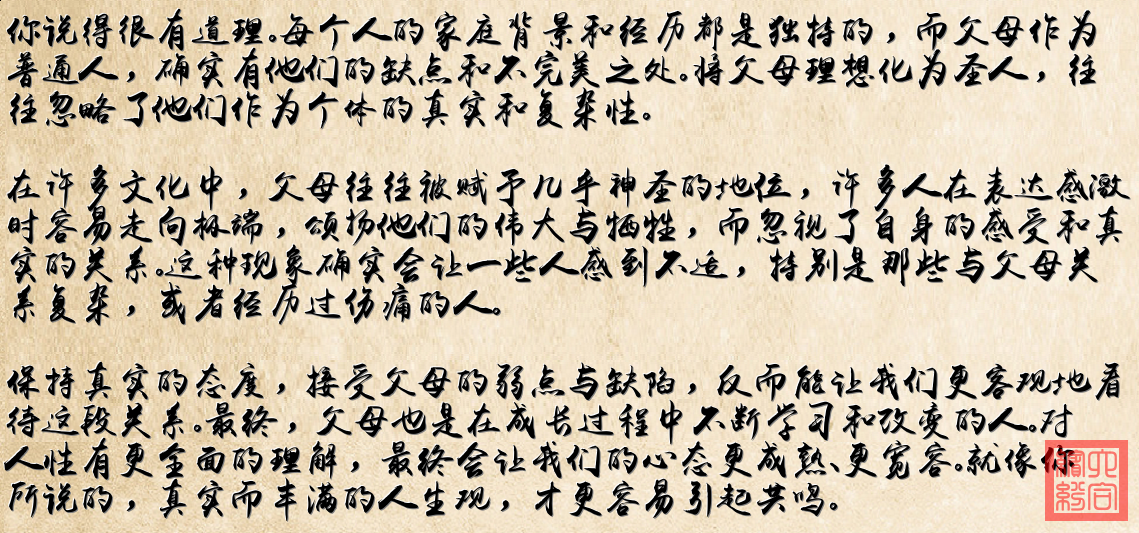 你说得很有道理。每个人的家庭背景和经历都是独特的，而父母作为
普通人，确实有他们的缺点和不完美之处。将父母理想化为圣人，往
往忽略了他们作为个体的真实和复杂性。
在许多文化中，父母往往被赋予几乎神圣的地位，许多人在表达感激
时容易走向极端，颂扬他们的伟大与牺牲，而忽视了自身的感受和真
实的关系。这种现象确实会让一些人感到不适，特别是那些与父母关
系复杂，或者经历过伤痛的人。
保持真实的态度，接受父母的弱点与缺陷，反而能让我们更客观地看
待这段关系。最终，父母也是在成长过程中不断学习和改变的人。对
人性有更全面的理解，最终会让我们的心态更成熟、更宽容。就像你
所说的，真实而丰满的人生观，才更容易引起共鸣。